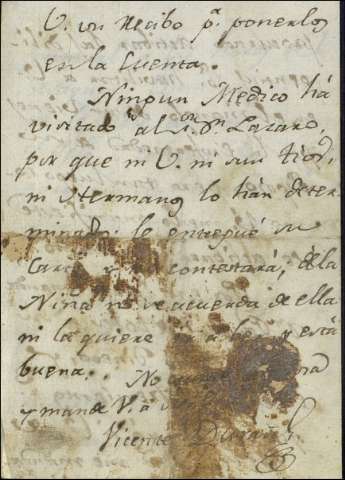 V. un Recibo pª. ponerlos
en la Cuenta.
Ningun Medico há
visitado al Sr. Dn. Lazaro,
por que ni V. ni sus tios,
ni Hermanos lo hán deter-
minado: le entregué su
Carta contestará, de la
Niña no se acuerda de ella
ni la quiere está
buena. No
y mande V. a
Vicente Durán